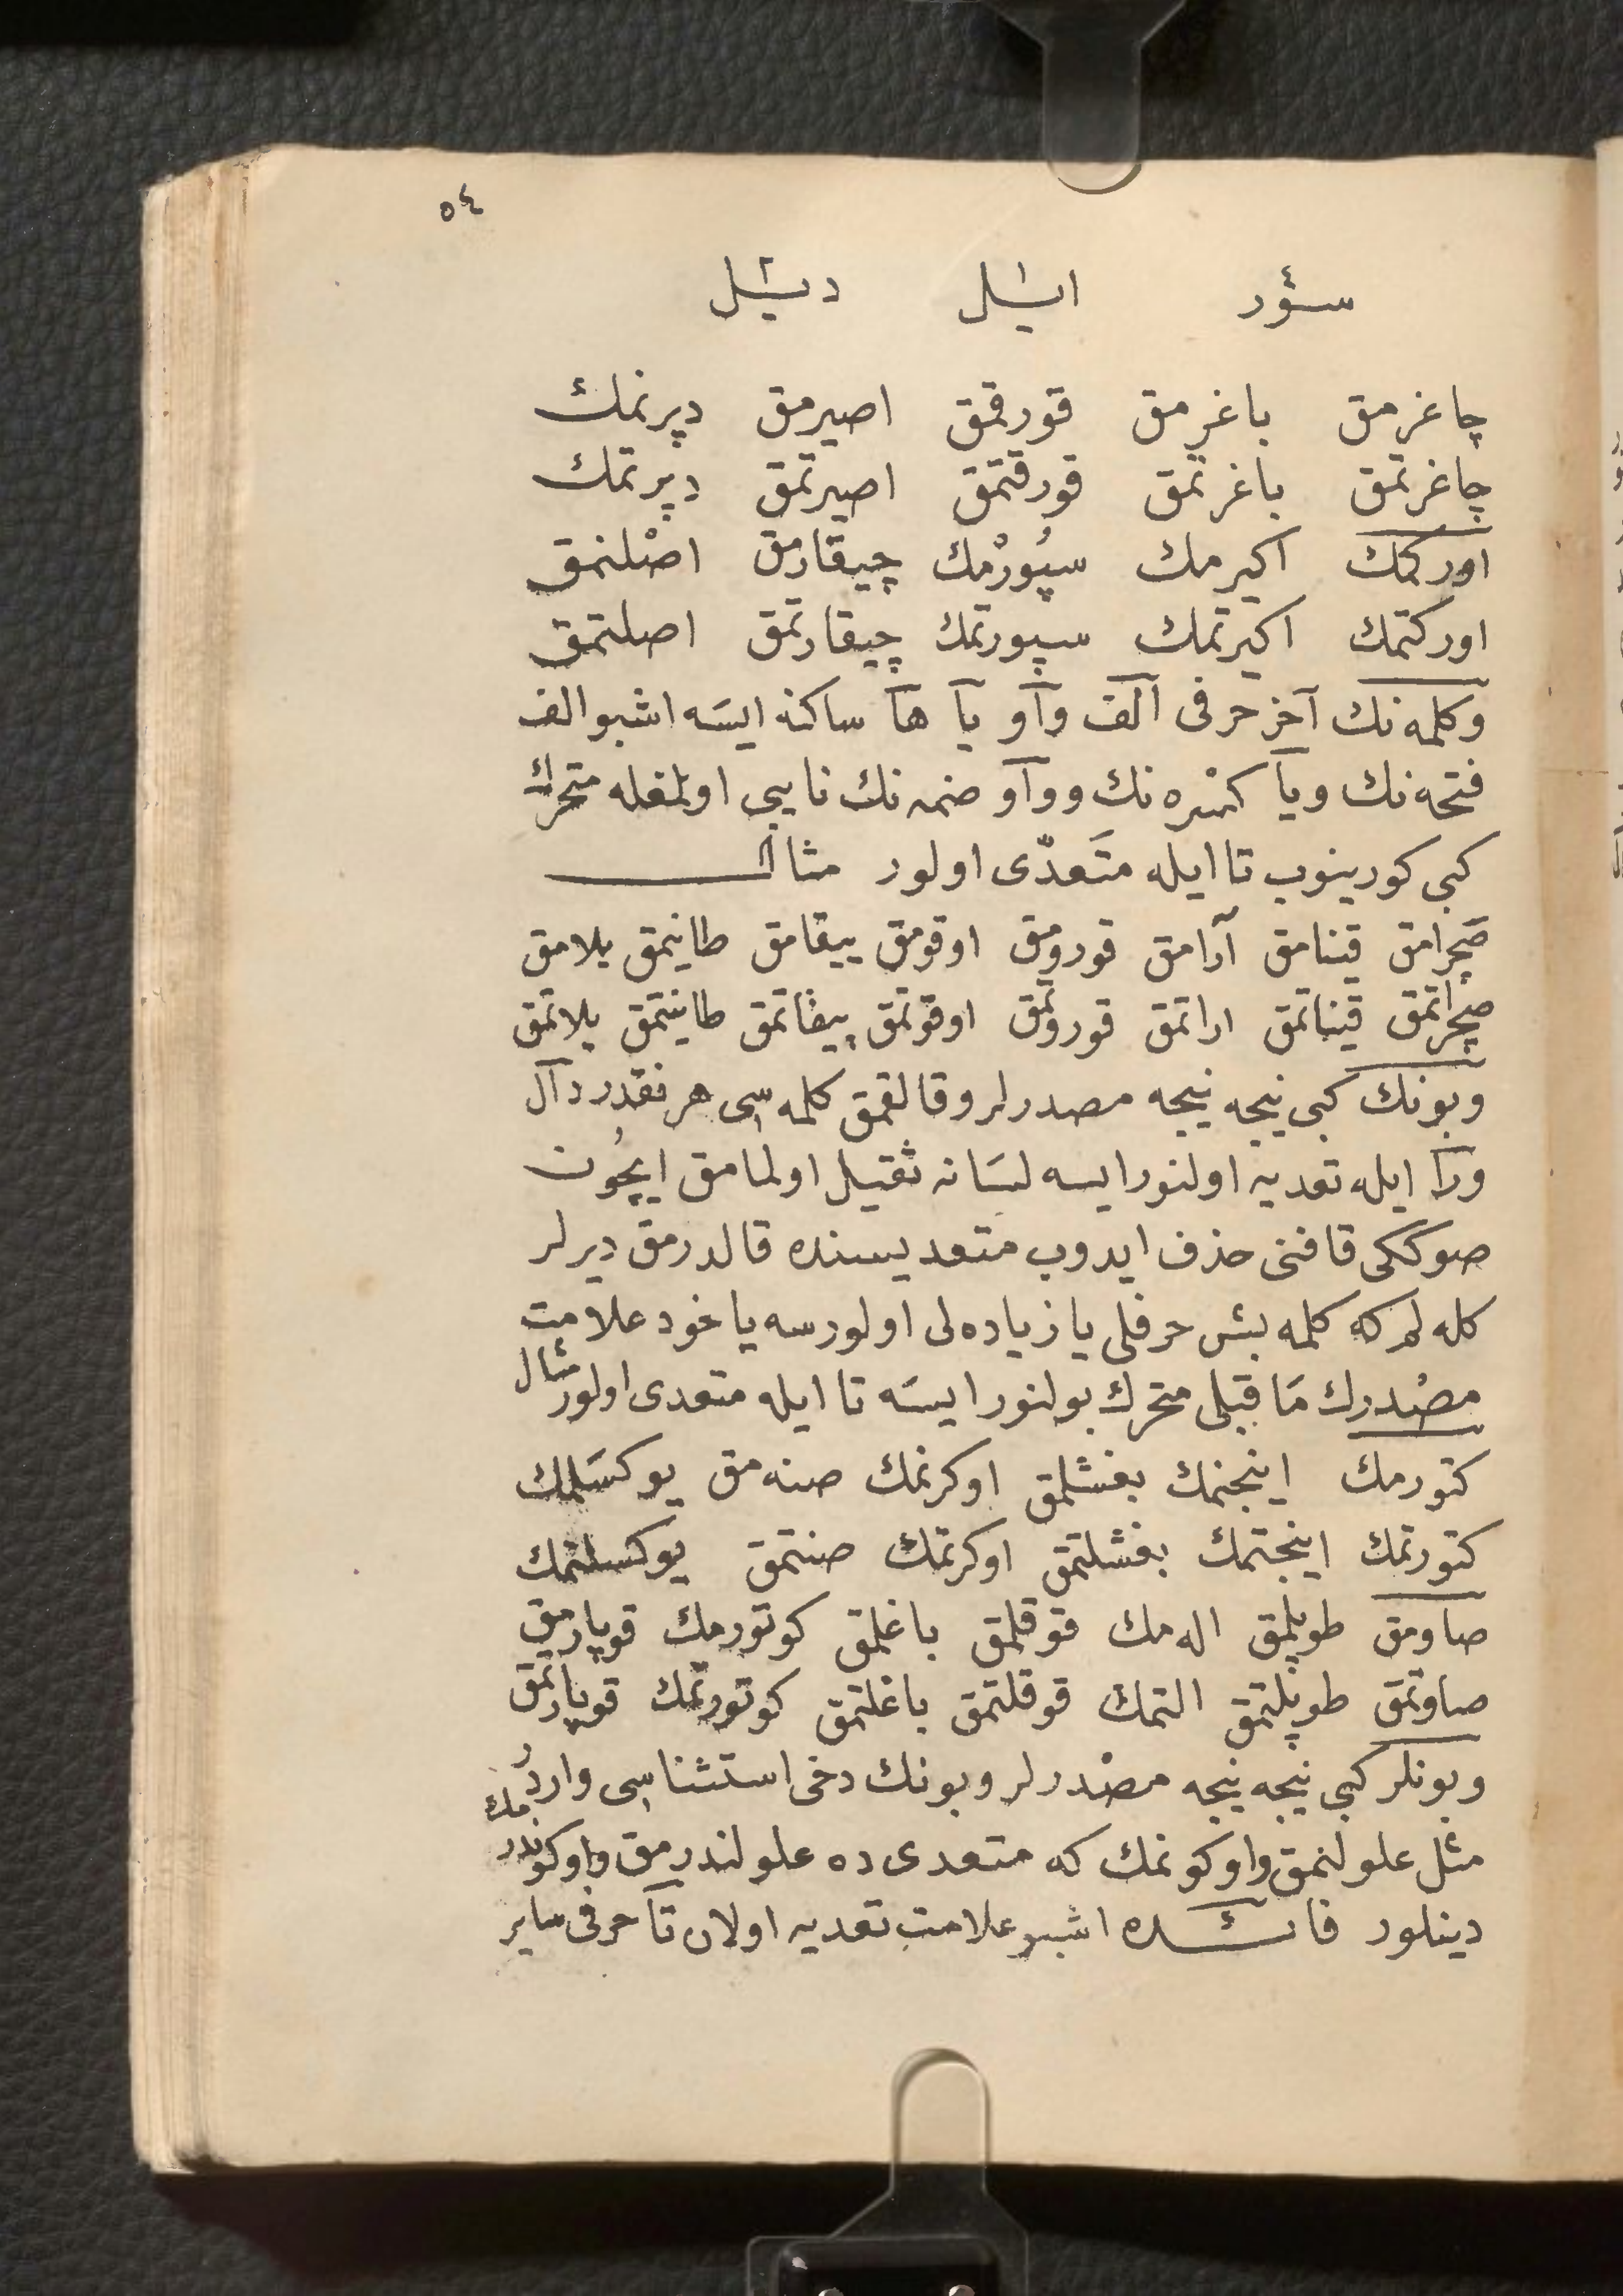 ٥٤
سؤر ايـل ديـل
چاغرمق باغرمق قورقمق اصيرمق دپرنمك
چاغرتمق باغرتمق قورقتمق اصيرتمق دپرتمك
اوركمك اكيرمك سپُورْمك چيقارمق اصْلنمق
اوركتمك اكيرتمك سپورتمك چيقارتمق اصلتمق
وكلمه نك آخر حرفى آلف وآو يآ هآ ساكنه ايسَه اشبو الف
فتحه نك ويآ كسْره نك ووآو ضمه نك نايبى اولمغله متحرك
كبى كورينوب تا ايله متَعدّى اولور مثال
صچرامق قينامق آرامق قورومق اوقومق ييقامق طانيمق يلامق
صچراتمق قيناتمق اراتمق قوروتمق اوقوتمق ييقاتمق طانيتمق يلاتمق
وبونك كبى نيجه نيجه مصدرلر وقالقمق كلمه سى هر نقدر دآل
ورآ ايله تعديه اولنور ايسه لسَانه ثقيل اولمامق ايچُون
صوككى قافنى حذف ايدوب متعديسنده قالدرمق ديرلر
كله لم كه كلمه بش حرفلى يا زياده لى اولورسه ياخود علامت
مصْدرك مَا قبلى متحرك بولنور ايسَه تا ايله متعدى اولور مثال
كتورمك اينجنمك بغشلمق اوكرنمك صنه مق يوكسَلمك
كتورتمك اينجتمك بغشلتمق اوكرتمك صنتمق يوكسلتمك
صاومق طوپلمق اله مك قوقلمق باغلمق كوتورمك قوپارمق
صاوتمق طوپلتمق التمك قوقلتمق باغلتمق كوتورتمك قوپارتمق
وبونلر كبى نيجه نيجه مصْدرلر وبونك دخى استثناسى واردُر
مثل علولنمق واوكونمك كه متعدى ده علولندرمق واوكوندرمك
دينلور فائـده اشبو علامت تعديه اولان تآ حرفى ساير